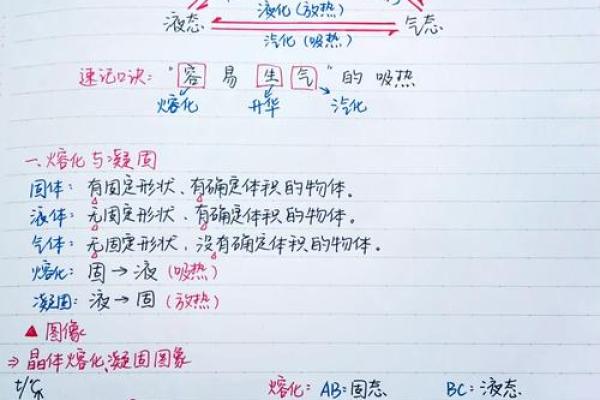 液化(放热)
液态 气态
汽化(吸热)
速记口诀:"容易生气"的 吸热
熔化 升华 汽化
一.熔化与凝固
固体:有固定形状、有确定体积的物体。
液体:无固定形状、有确定体积的物体。
气体:无固定形状,没有确定体积的物体。
熔化:固→液(吸热)
凝固:液→固(放热)
▲图像
⇒晶体熔化、凝固图象
t/℃ 熔化:AB:固态 BC:液态